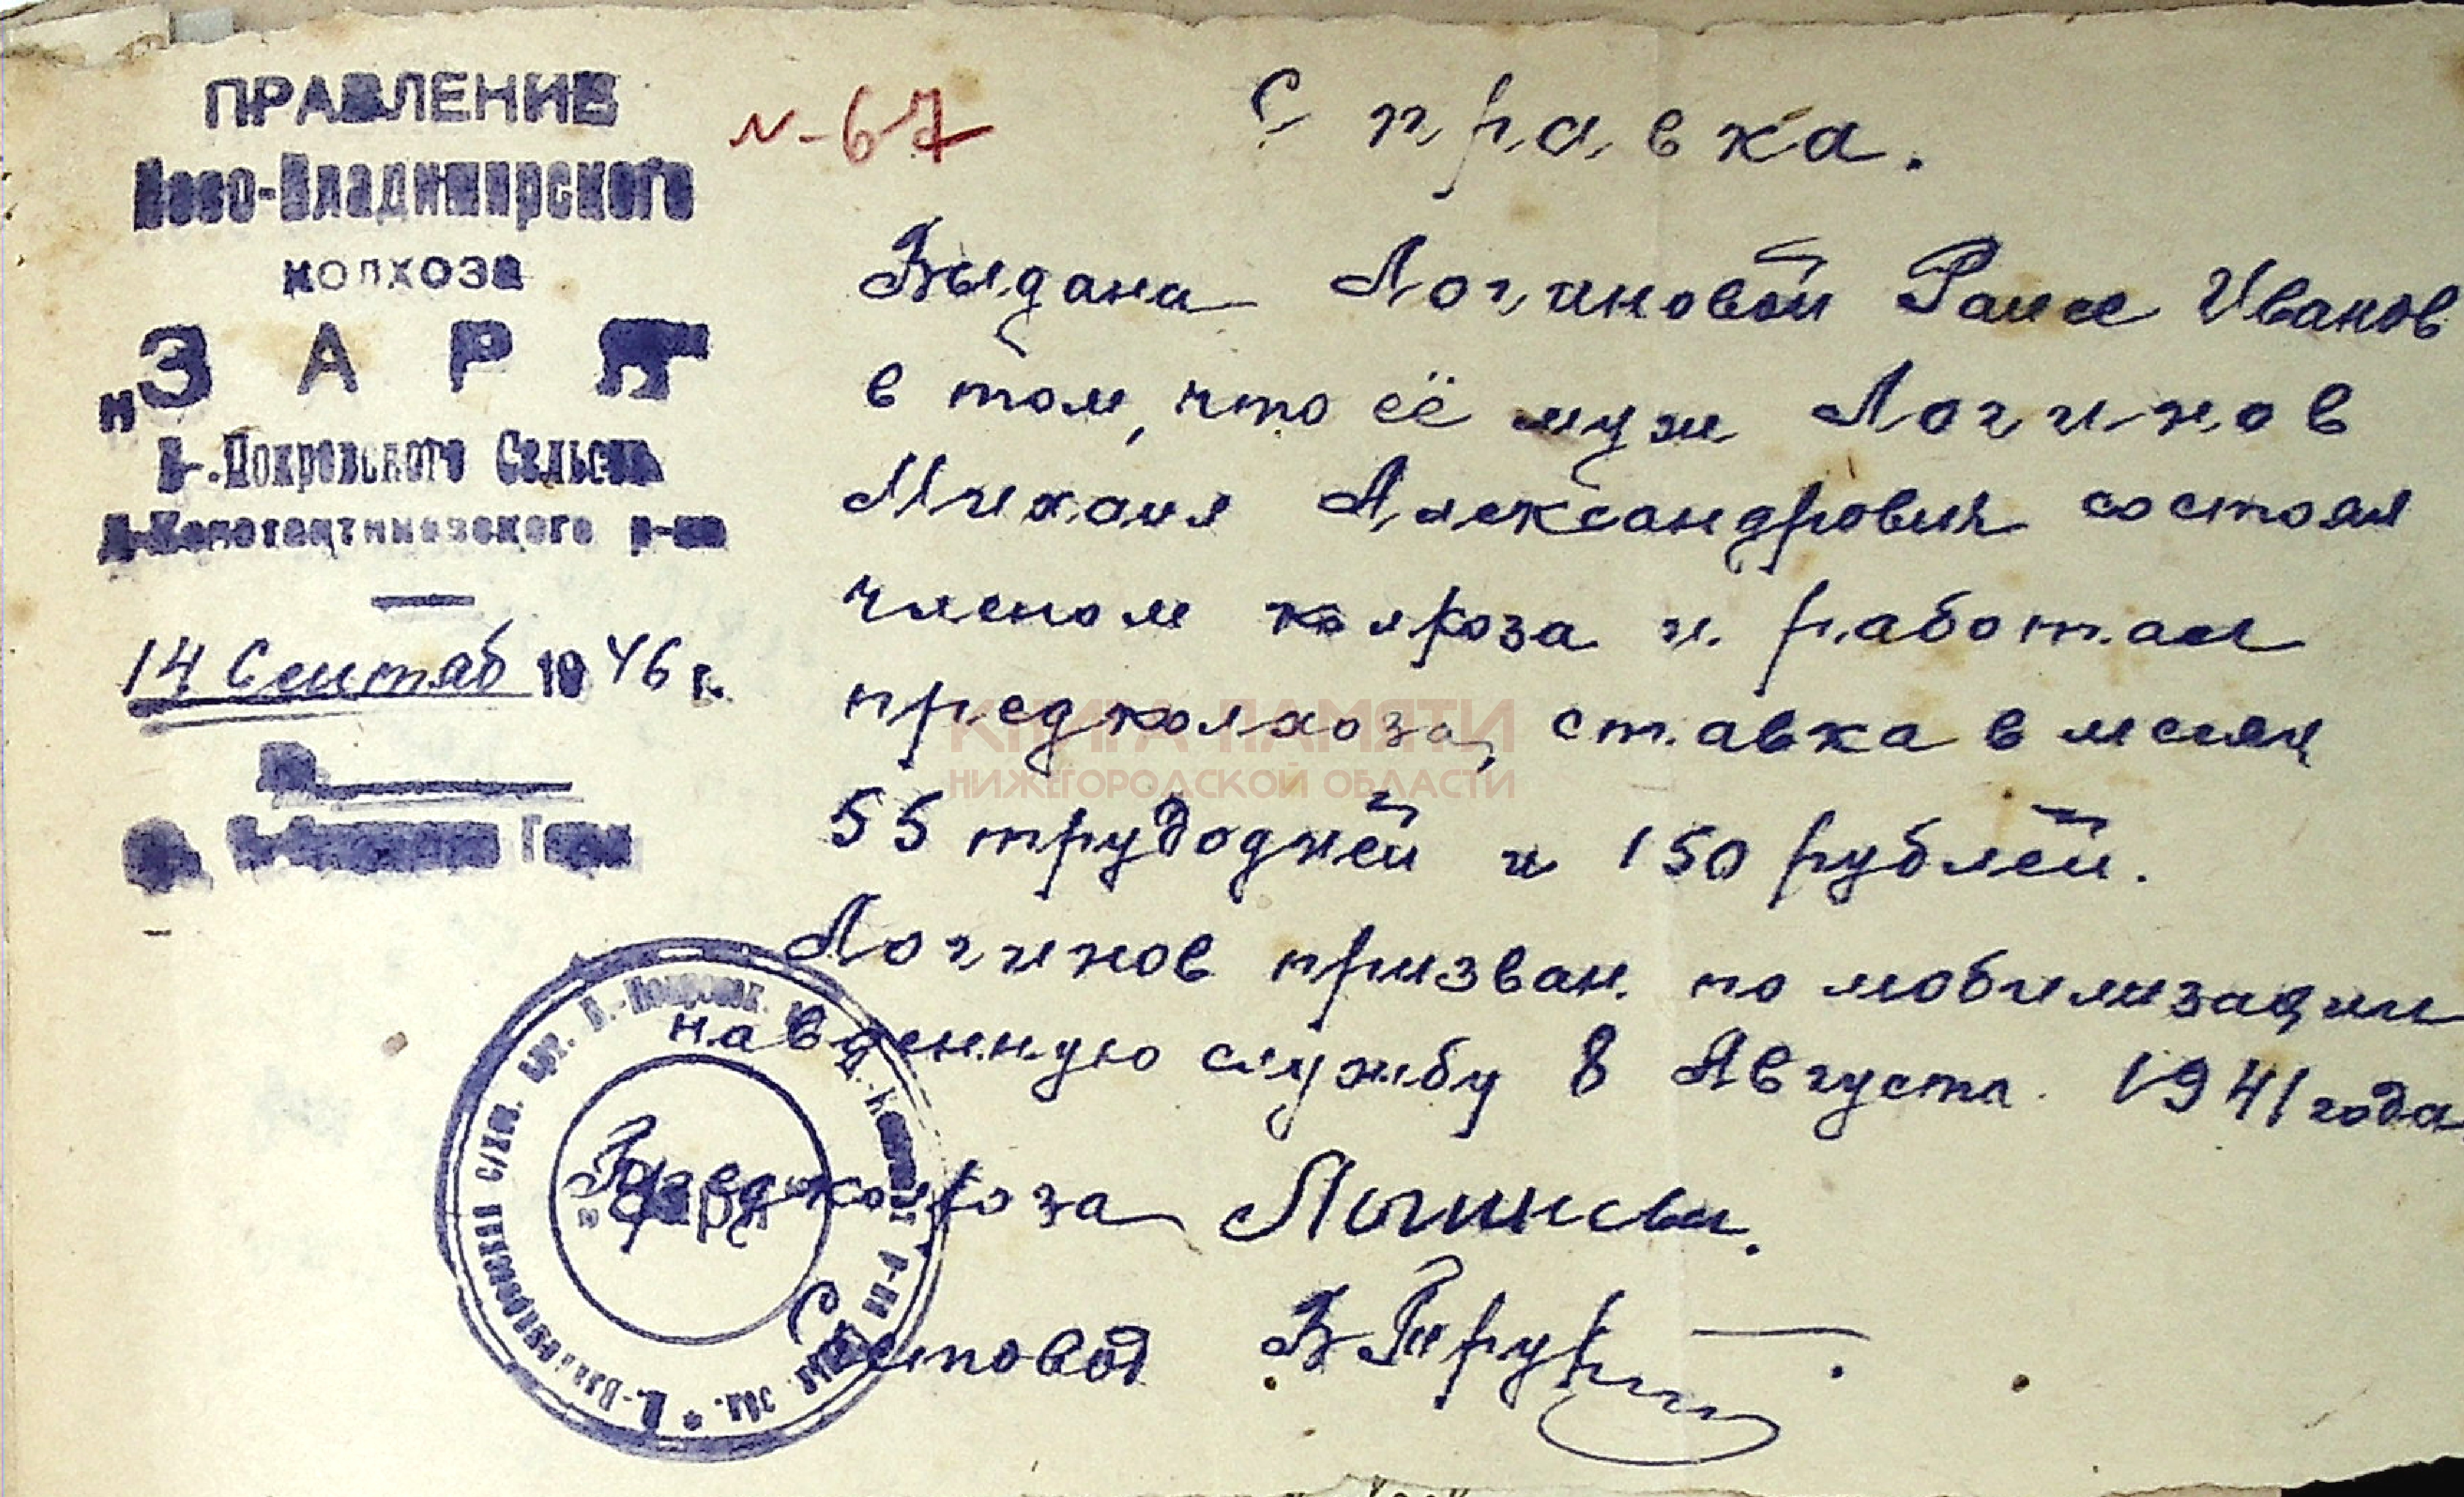 ПРАВЛЕНИЕ
Ново-Владимирского
колхоза
„ЗАРЯ
В-.Покровского Сельсов
Д-Константиновского р-на
14 Сентяб 1946 г.
N-67
Справка.
Выдана Логиновой Раисе Иванов
в том, что её муж Логинов
Михаил Александрович состоял
членом колхоза и работал
предколхоза, ставка в месяц
55 трудодней и 150 рублей.
Логинов призван по мобилизации
на военную службу 8 Августа 1941 года
Предколхоза Логинова.
Счетовод
"Заря"
КНИГА ПАМЯТИ
НИЖЕГОРОДСКОЙ ОБЛАСТИ